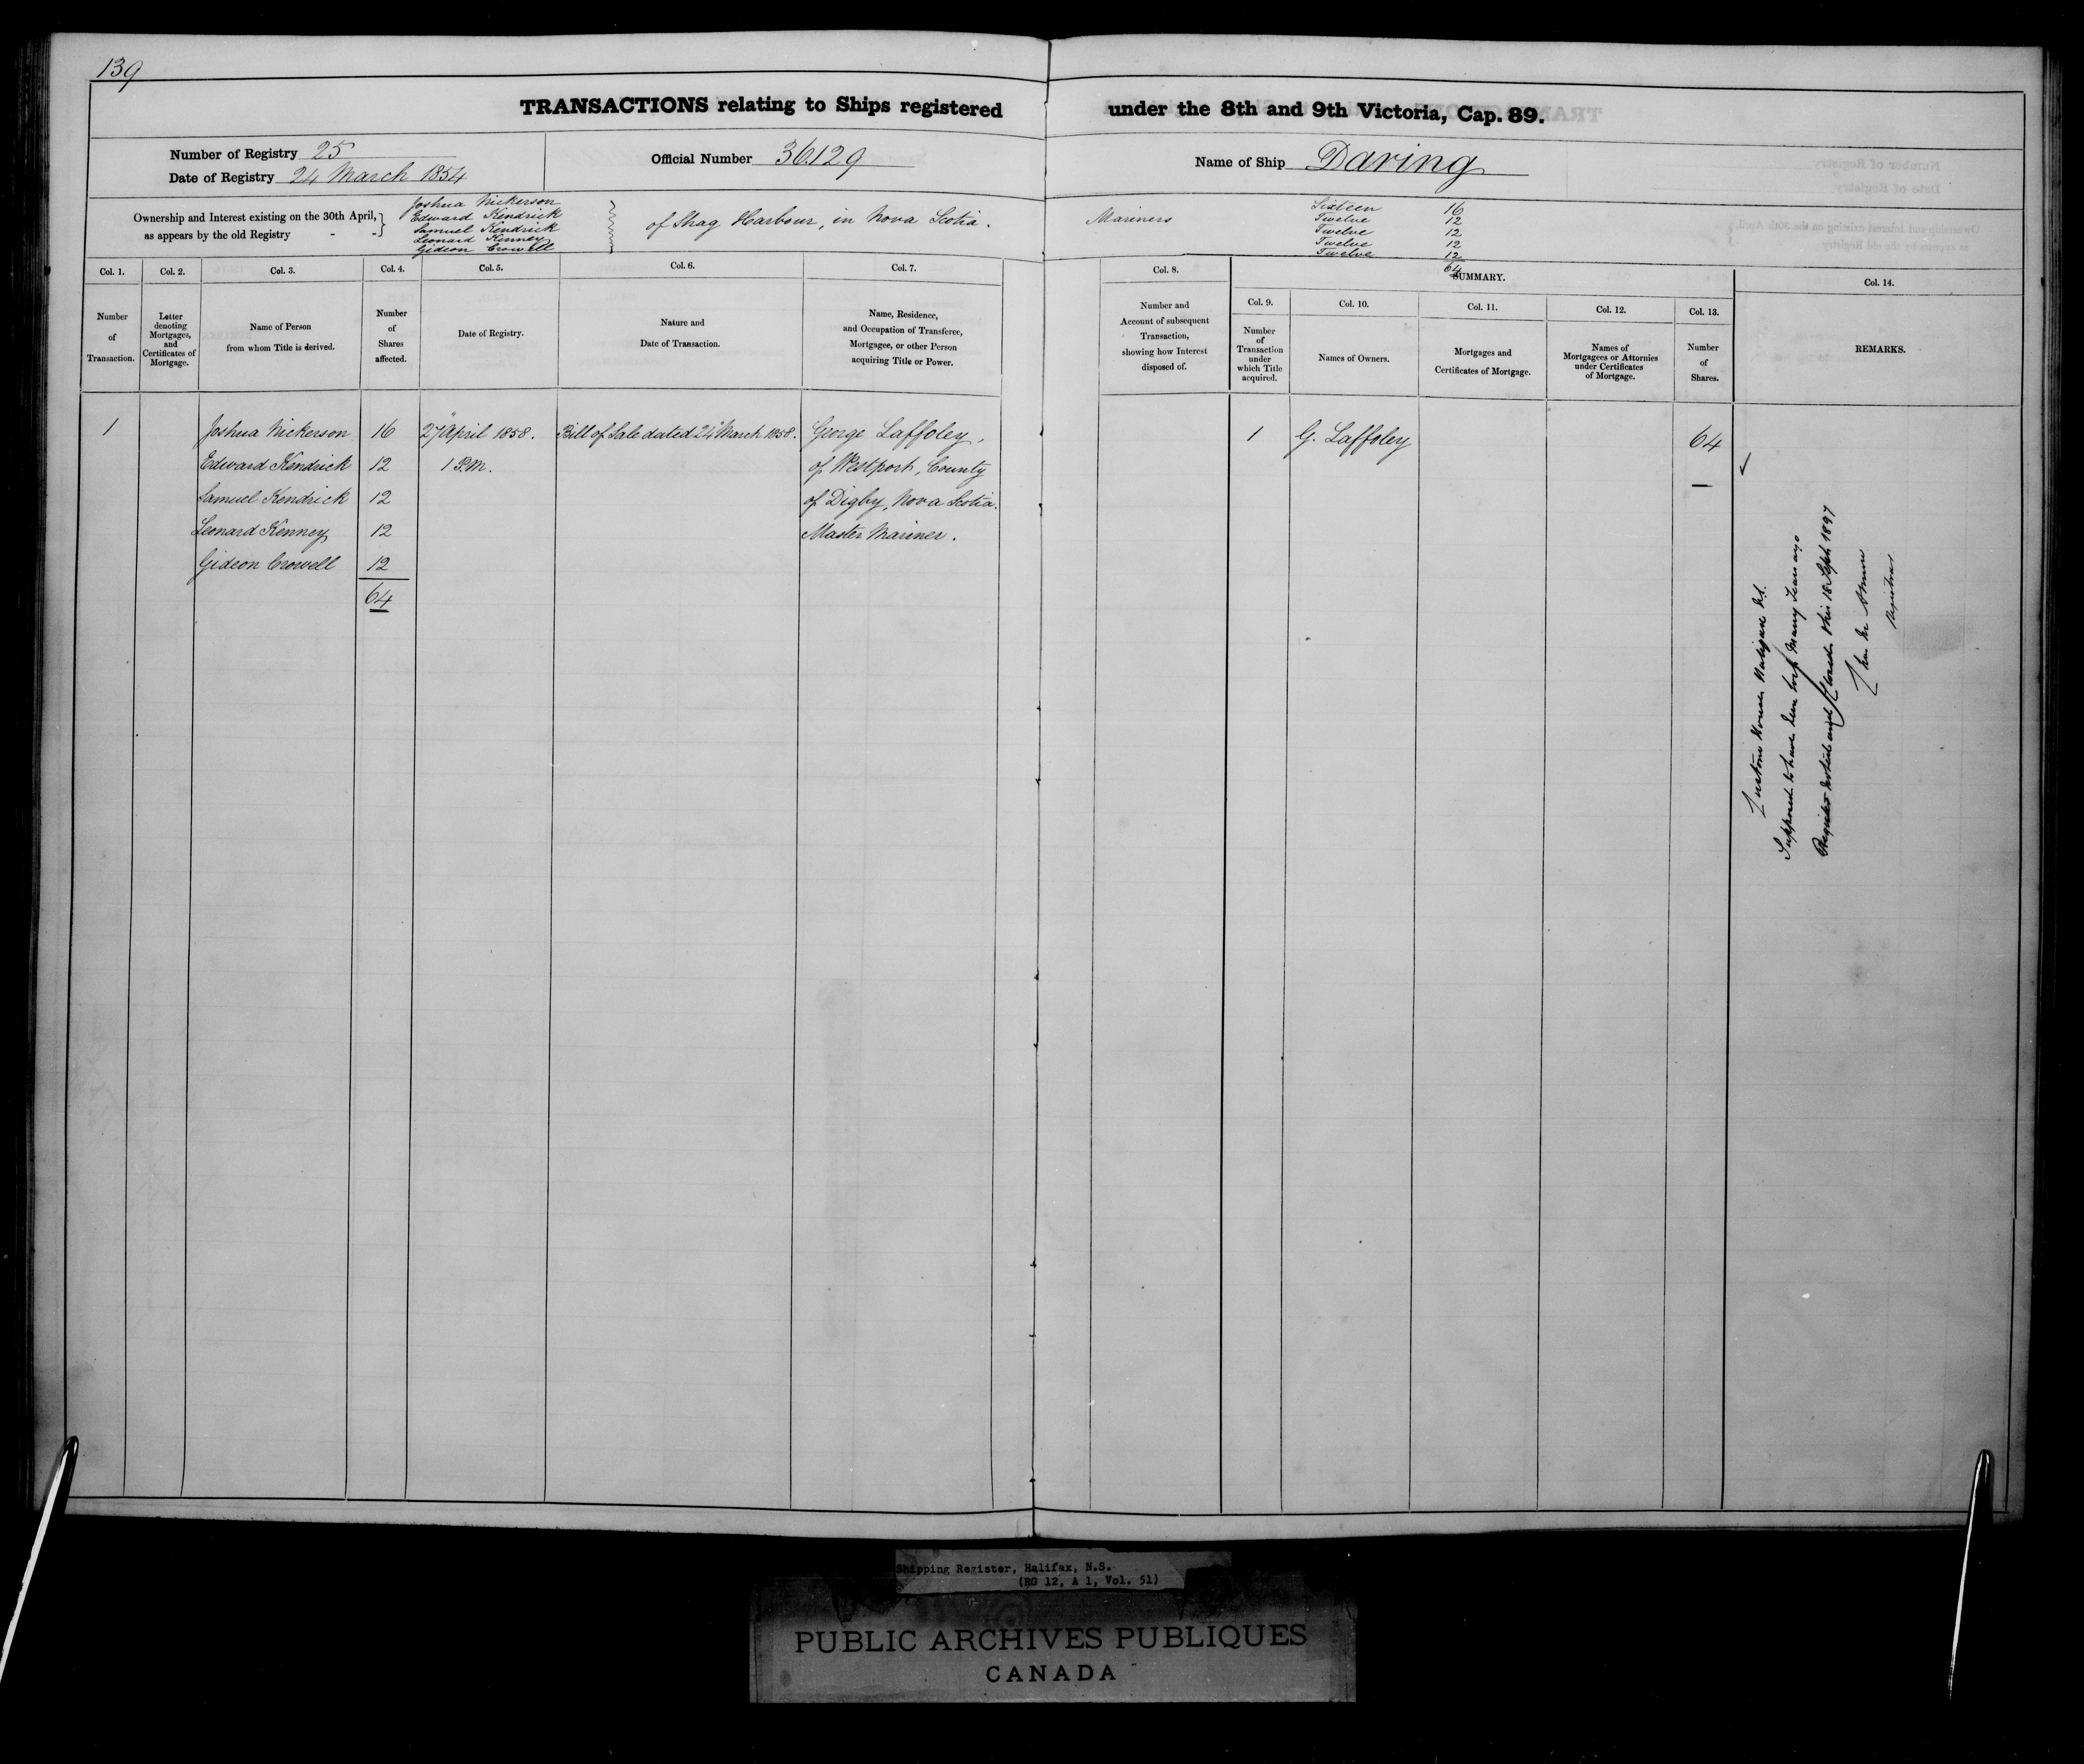 139
TRANSACTIONS relating to Ships registered under the 8th and 9th Victoria, Cap. 89.
Number of Registry 25
Date of Registry 24 March 1854
Official Number 36129
Name of Ship Daring
Ownership and Interest existing on the 30th April,
as appears by the old Registry - -
Joshua Nickerson
Edward Kendrick
Samuel Kendrick
Leonard Kenney
Gideon Crowell
of Shag Harbour, in Nova Scotia.
Mariners
Sixteen 16
Twelve 12
Twelve 12
Twelve 12
Twelve 12
64
Col. 1.
Number
of
Transaction.
Col. 2.
Letter
denoting
Mortgages,
and
Certificates of
Mortgage.
Col. 3.
Name of Person
from whom Title is derived.
Col. 4.
Number
of
Shares
affected.
Col. 5.
Date of Registry.
Col. 6.
Nature and
Date of Transaction.
Col. 7.
Name, Residence,
and Occupation of Transferee,
Mortgagee, or other Person
acquiring Title or Power.
Col. 8.
Number and
Account of subsequent
Transaction,
showing how Interest
disposed of.
SUMMARY.
Col. 9.
Number
of
Transaction
under
which Title
acquired.
Col. 10.
Names of Owners.
Col. 11.
Mortgages and
Certificates of Mortgage.
Col. 12.
Names of
Mortgagees or Attornies
under Certificates
of Mortgage.
Col. 13.
Number
of
Shares.
Col. 14.
REMARKS.
1 Joshua Nickerson 16 27 April 1858. Bill of Sale dated 24 March 1858. George Laffoley,
Edward Kendrick 12 1 P.M. of Westport, County
Samuel Kendrick 12 of Digby, Nova Scotia.
Leonard Kenney 12 Master Mariner.
Gideon Crowell 12
64
1 G. Laffoley 64
Custom House Halifax NS.
Supposed to have been lost many years ago
Register and Closed this 18 Sept 1897
Registrar
Shipping Register, Halifax, N.S.
(RG 12, A 1, Vol. 51)
PUBLIC ARCHIVES PUBLIQUES
CANADA